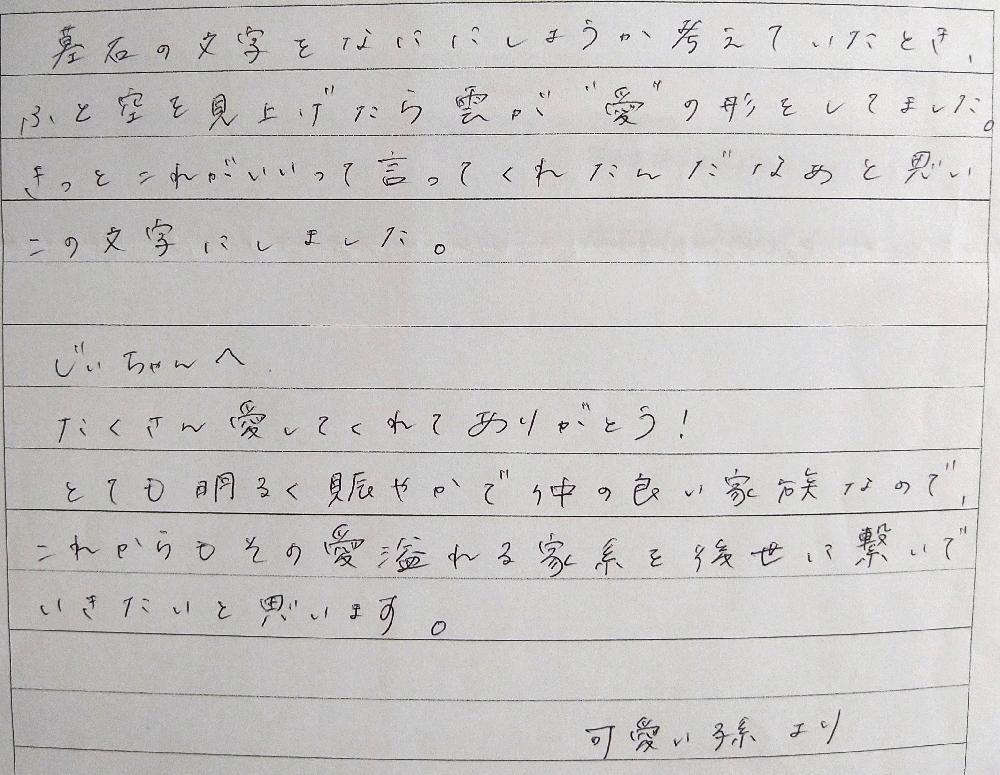 墓石の文字をなににしようか考えていたとき、
ふと空を見上げたら雲が“愛”の形をしてました。
きっとこれがいいって言ってくれたんだなあと思い
この文字にしました。
じいちゃんへ
たくさん愛してくれてありがとう!
とても明るく賑やかで仲の良い家族なので、
これからもその愛溢れる家系を後世に繋いで
いきたいと思います。
可愛い孫より